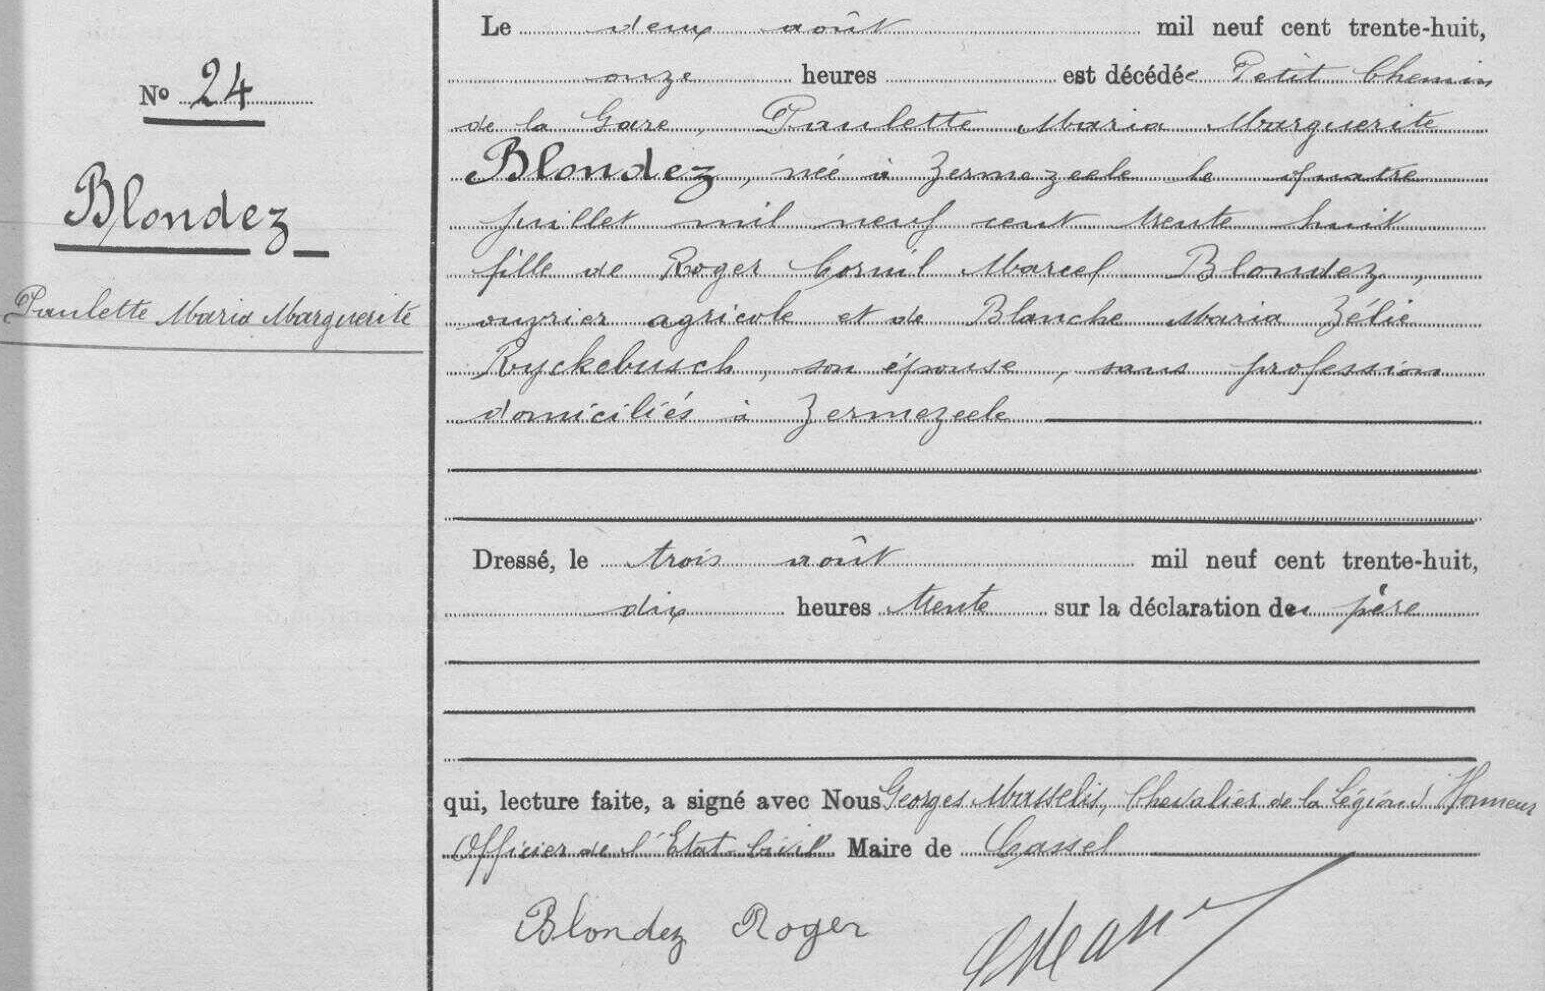 Le deux août mil neuf cent trente-huit,
onze heures est décédée Petit Chemin
de la Gare, Paulette Maria Marguerite
Blondez, née à Zermezeele le quatre
juillet mil neuf cent trente huit
fille de Roger Cornil Marcel Blondez,
ouvrier agricole et de Blanche Maria Zélie
Ryckebusch, son épouse, sans profession
domiciliés à Zermezeele
Dressé, le trois août mil neuf cent trente-huit,
dix heures trente sur la déclaration du père
qui, lecture faite, a signé avec Nous Georges Masselis, Chevalier de la Légion d'Honneur
Officier de l'Etat-Civil Maire de Cassel
Blondez Roger
No 24
Blondez
Paulette Maria Marguerite